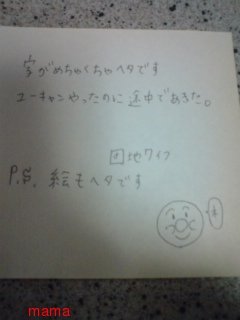 字がめちゃくちゃヘタです
ユーキャンやったのに途中であきた。
団地ワイフ
P.S. 絵もヘタです
mama